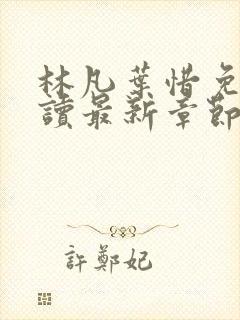 林凡葉惜免
讀最新章節
許鄭妃